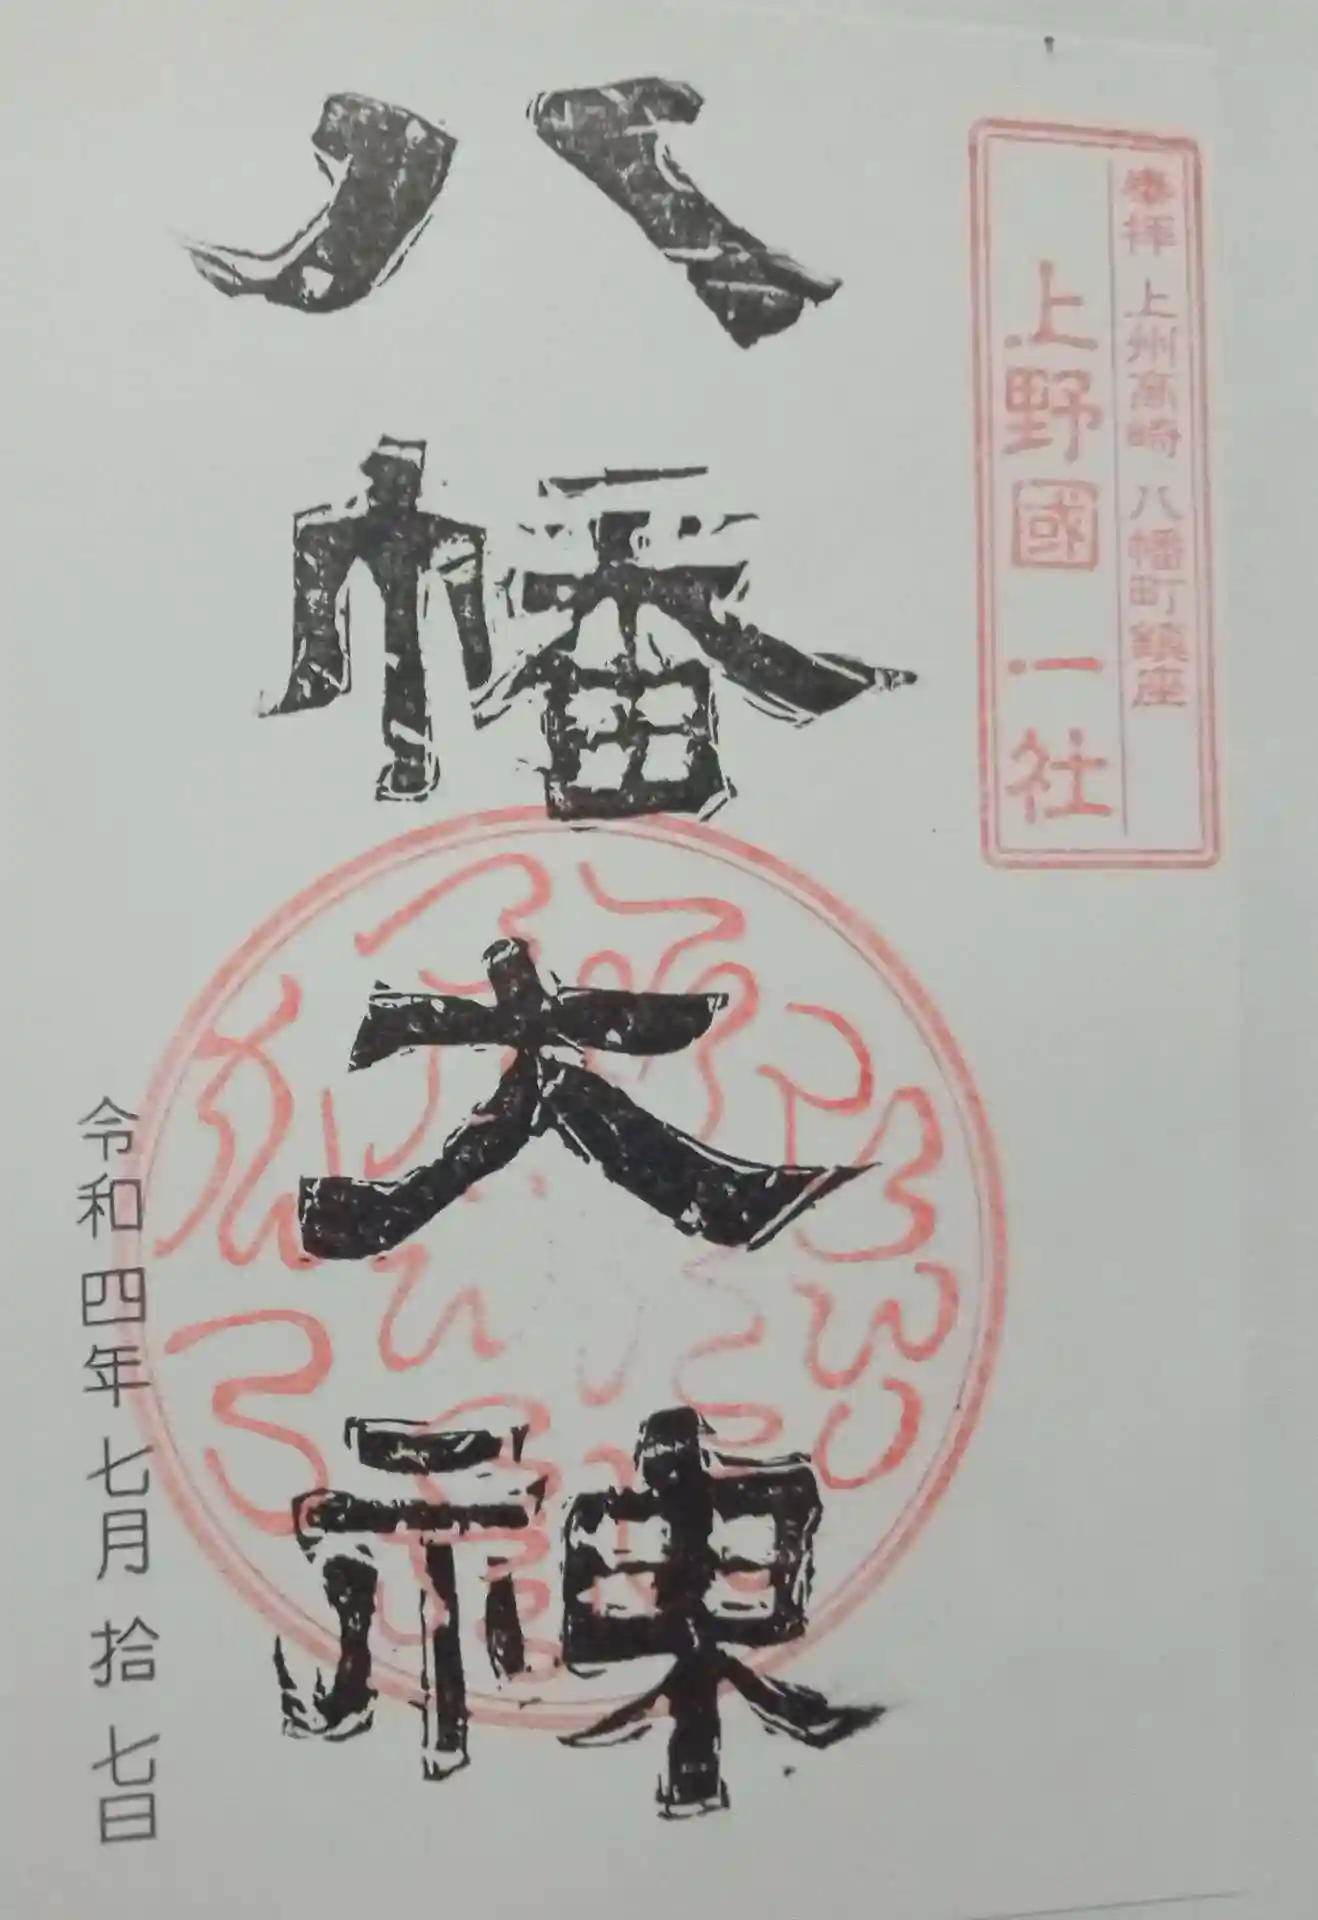 奉拝 上州高崎 八幡町鎮座
上野國一社
八幡大神
令和四年七月拾七日